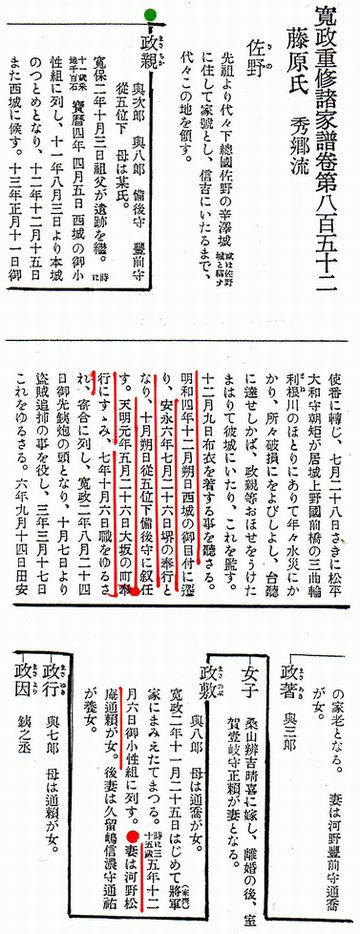 寛政重修諸家譜卷第八百五十二
藤原氏 秀郷流
佐野
さの
先祖より代々下總國佐野の辛澤城
或は佐野城と稱す
に住して家號とし、信吉にいたるまで、
代々この地を領す。
政親
まさちか
與次郎 與八郎 備後守 豐前守
從五位下 母は某氏。
寛保二年十月三日祖父が遺跡を繼。時に
十一歳采地千百石
寶曆四年四月五日西城の御小
性組に列し、十一年八月三日より本城
のつとめとなり、十二年十二月十五日
また西城に候す。十三年正月十一日御
使番に轉じ、七月二十八日さきに松平
大和守朝矩が居城上野國前橋の三曲輪
利根川のほとりにありて年々水災にか
かり、所々破損にをよびしよし、台聽
に達せしかば、政親等おほせをうけた
まはりて彼城にいたり、これを監す。
十二月九日布衣を着する事を聽さる。
明和四年十二月朔日西城の御目付に轉
り、安永六年七月二十六日堺の奉行と
なり、十月朔日從五位下備後守に叙任
す。天明元年五月二十六日大坂の町奉
行にすゝみ、七年十月六日職をゆるさ
れ、寄合に列し、寛政二年八月二十四
日御先鐵炮の頭となり、十月七日より
盜賊追捕の事を役し、三年三月十七日
これをゆるさる。六年九月十四日田安
の家老となる。 妻は河野豐前守通喬
が女。
政著
まさあき
與三郎
女子
桑山辨吉晴喜に嫁し、離婚の後、室
賀壹岐守正頼が妻となる。
政敷
まさのぶ
與八郎 母は通喬が女。
寛政二年十一月二十五日はじめて將軍
家齊
家にまみえたてまつる。時に三十五歳 五年十二
月六日御小性組に列す。 妻は河野松
庵通頼が女。後妻は久留嶋信濃守通祐
が養女。
政行
まさゆき
與七郎 母は通頼が女。
政因
まさより
銕之丞